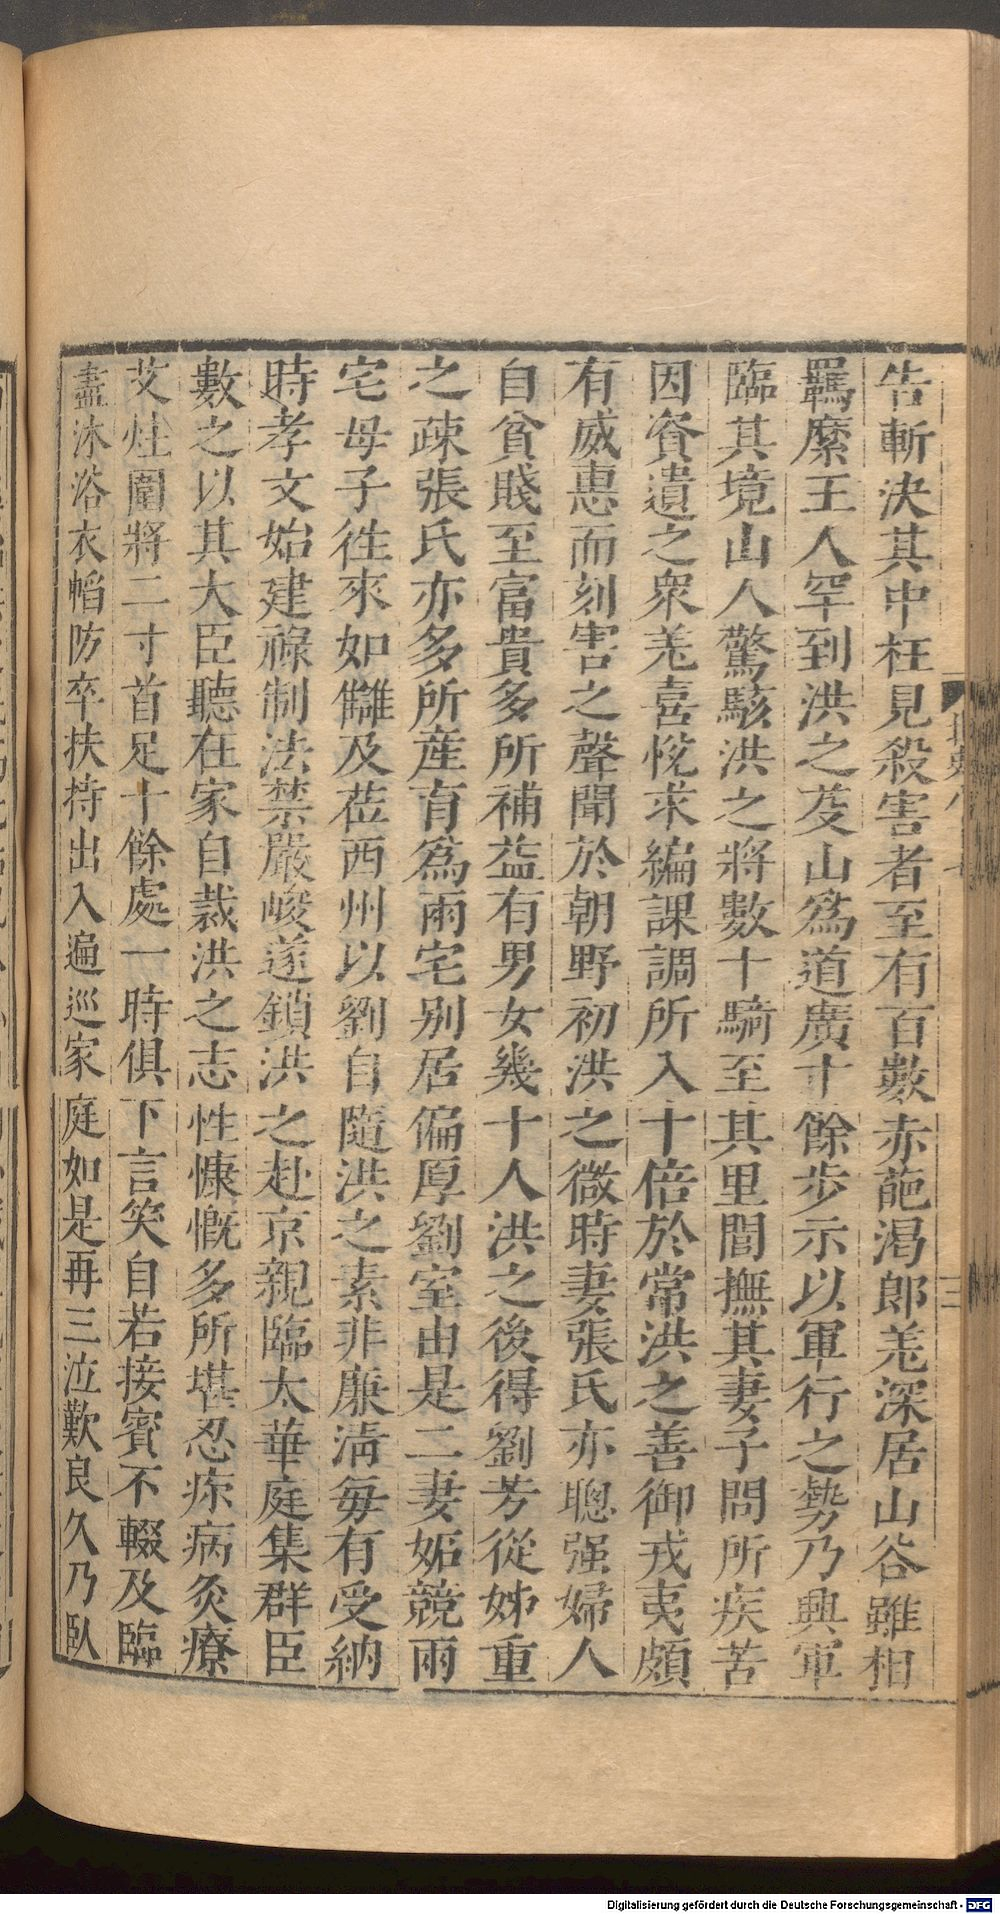 告斬決其中枉見殺害者至有百數赤葩渴郎羌深居山谷雖相
羈縻王人罕到洪之芟山爲道廣十餘步示以軍行之勢乃興軍
臨其境山人驚駭洪之將數十騎至其里閭撫其妻子問所疾苦
因資遺之衆羌喜悅求編課調所入十倍於常洪之善御戎夷頗
有威惠而刻害之聲聞於朝野初洪之微時妻張氏亦聰强婦人
自貧賤至富貴多所補益有男女幾十人洪之後得劉芳從姊重
之疎張氏亦多所産育爲兩宅别居偏厚劉室由是二妻妬競兩
宅母子徃來如讎及莅西州以劉自隨洪之素非廉清每有受納
時孝文始建祿制法禁嚴峻遂鎖洪之赴京親臨太華庭集群臣
數之以其大臣聽在家自裁洪之志性慷慨多所堪忍疹病灸療
艾炷圍將二寸首足十餘處一時俱下言笑自若接賓不輟及臨
盡沐浴衣㡊防卒扶持出入遍巡家庭如是再三泣歎良久乃臥
三
Digitalisierung gefördert durch die Deutsche Forschungsgemeinschaft - DFG